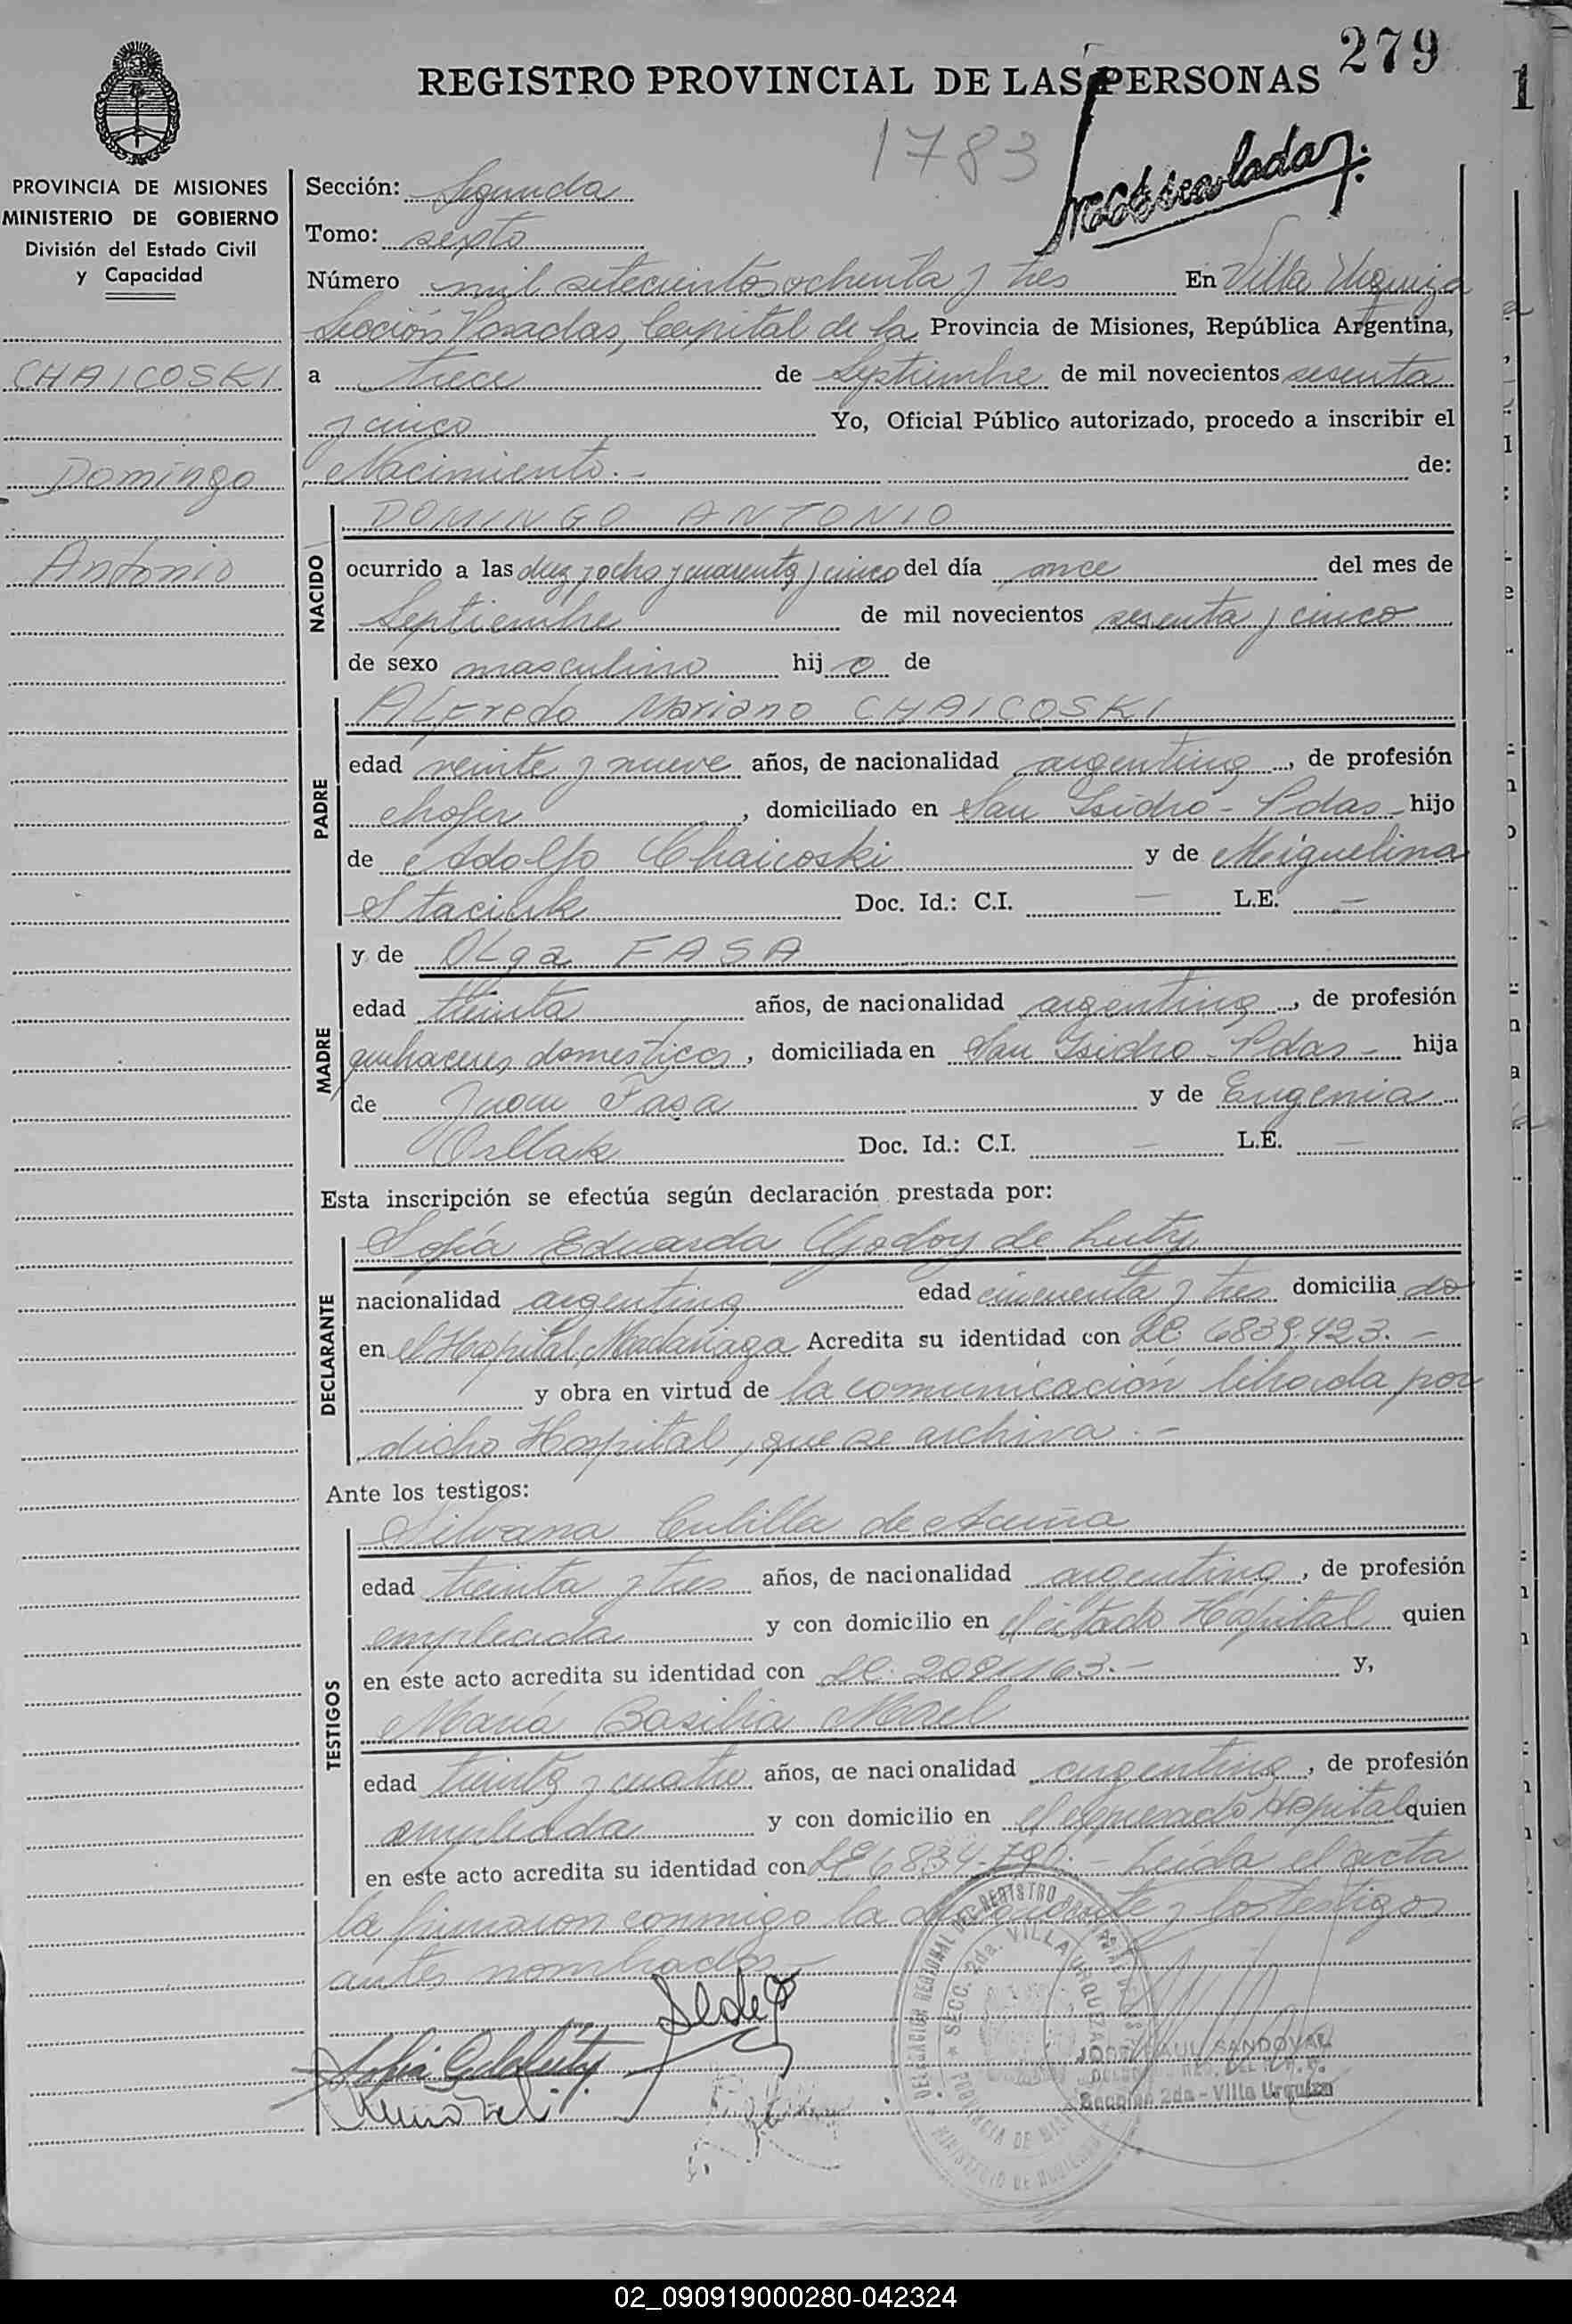 279
REGISTRO PROVINCIAL DE LAS PERSONAS
1
1783
PROVINCIA DE MISIONES
MINISTERIO DE GOBIERNO
División del Estado Civil
y Capacidad
CHAICOSKI
Domingo
Antonio
Sección: Segunda
Tomo: sexto
Número mil setecientos ochenta y tres En Villa Urquiza
Sección Posadas, Capital de la Provincia de Misiones, República Argentina,
a trece de Septiembre de mil novecientos sesenta
y cinco Yo, Oficial Público autorizado, procedo a inscribir el
Nacimiento.- de:
NACIDO
DOMINGO ANTONIO
ocurrido a las diez y ocho y cuarenta y cinco del día once del mes de
Septiembre de mil novecientos sesenta y cinco
de sexo masculino hijo de
PADRE
Alfredo Mariano CHAICOSKI
edad veinte y nueve años, de nacionalidad argentina, de profesión
chofer, domiciliado en San Isidro - Pdas - hijo
de Adolfo Chaicoski y de Miguelina
Doc. Id.: C.I. — L.E. —
MADRE
y de Olga FASA
edad treinta años, de nacionalidad argentina, de profesión
quehaceres domesticos, domiciliada en San Isidro - Pdas - hija
de Juan Fasa y de Eugenia
Doc. Id.: C.I. — L.E. —
Esta inscripción se efectúa según declaración prestada por:
DECLARANTE
Sofía Eduarda Godoy de Luty
nacionalidad argentina edad cincuenta y tres domiciliado
en el Hospital Madariaga Acredita su identidad con LC. 6839.423.-
y obra en virtud de la comunicación librada por
dicho Hospital, que se archiva.-
Ante los testigos:
TESTIGOS
Silvana Cubilla de Acuña
edad treinta y tres años, de nacionalidad argentina, de profesión
empleada y con domicilio en el citado Hospital quien
en este acto acredita su identidad con LC. y,
María Basilia
edad treinta y cuatro años, de nacionalidad argentina, de profesión
empleada y con domicilio en el expresado Hospital quien
en este acto acredita su identidad con - Leída el acta
la firmaron conmigo la declarante y los testigos
antes nombrados
DELEGACION REGIONAL DEL REGISTRO
SECC. 2da. VILLA URQUIZA
PROVINCIA DE MISIONES
MINISTERIO DE GOBIERNO
JOSE RAUL SANDOVAL
Sección 2da - Villa Urquiza
02_090919000280-042324